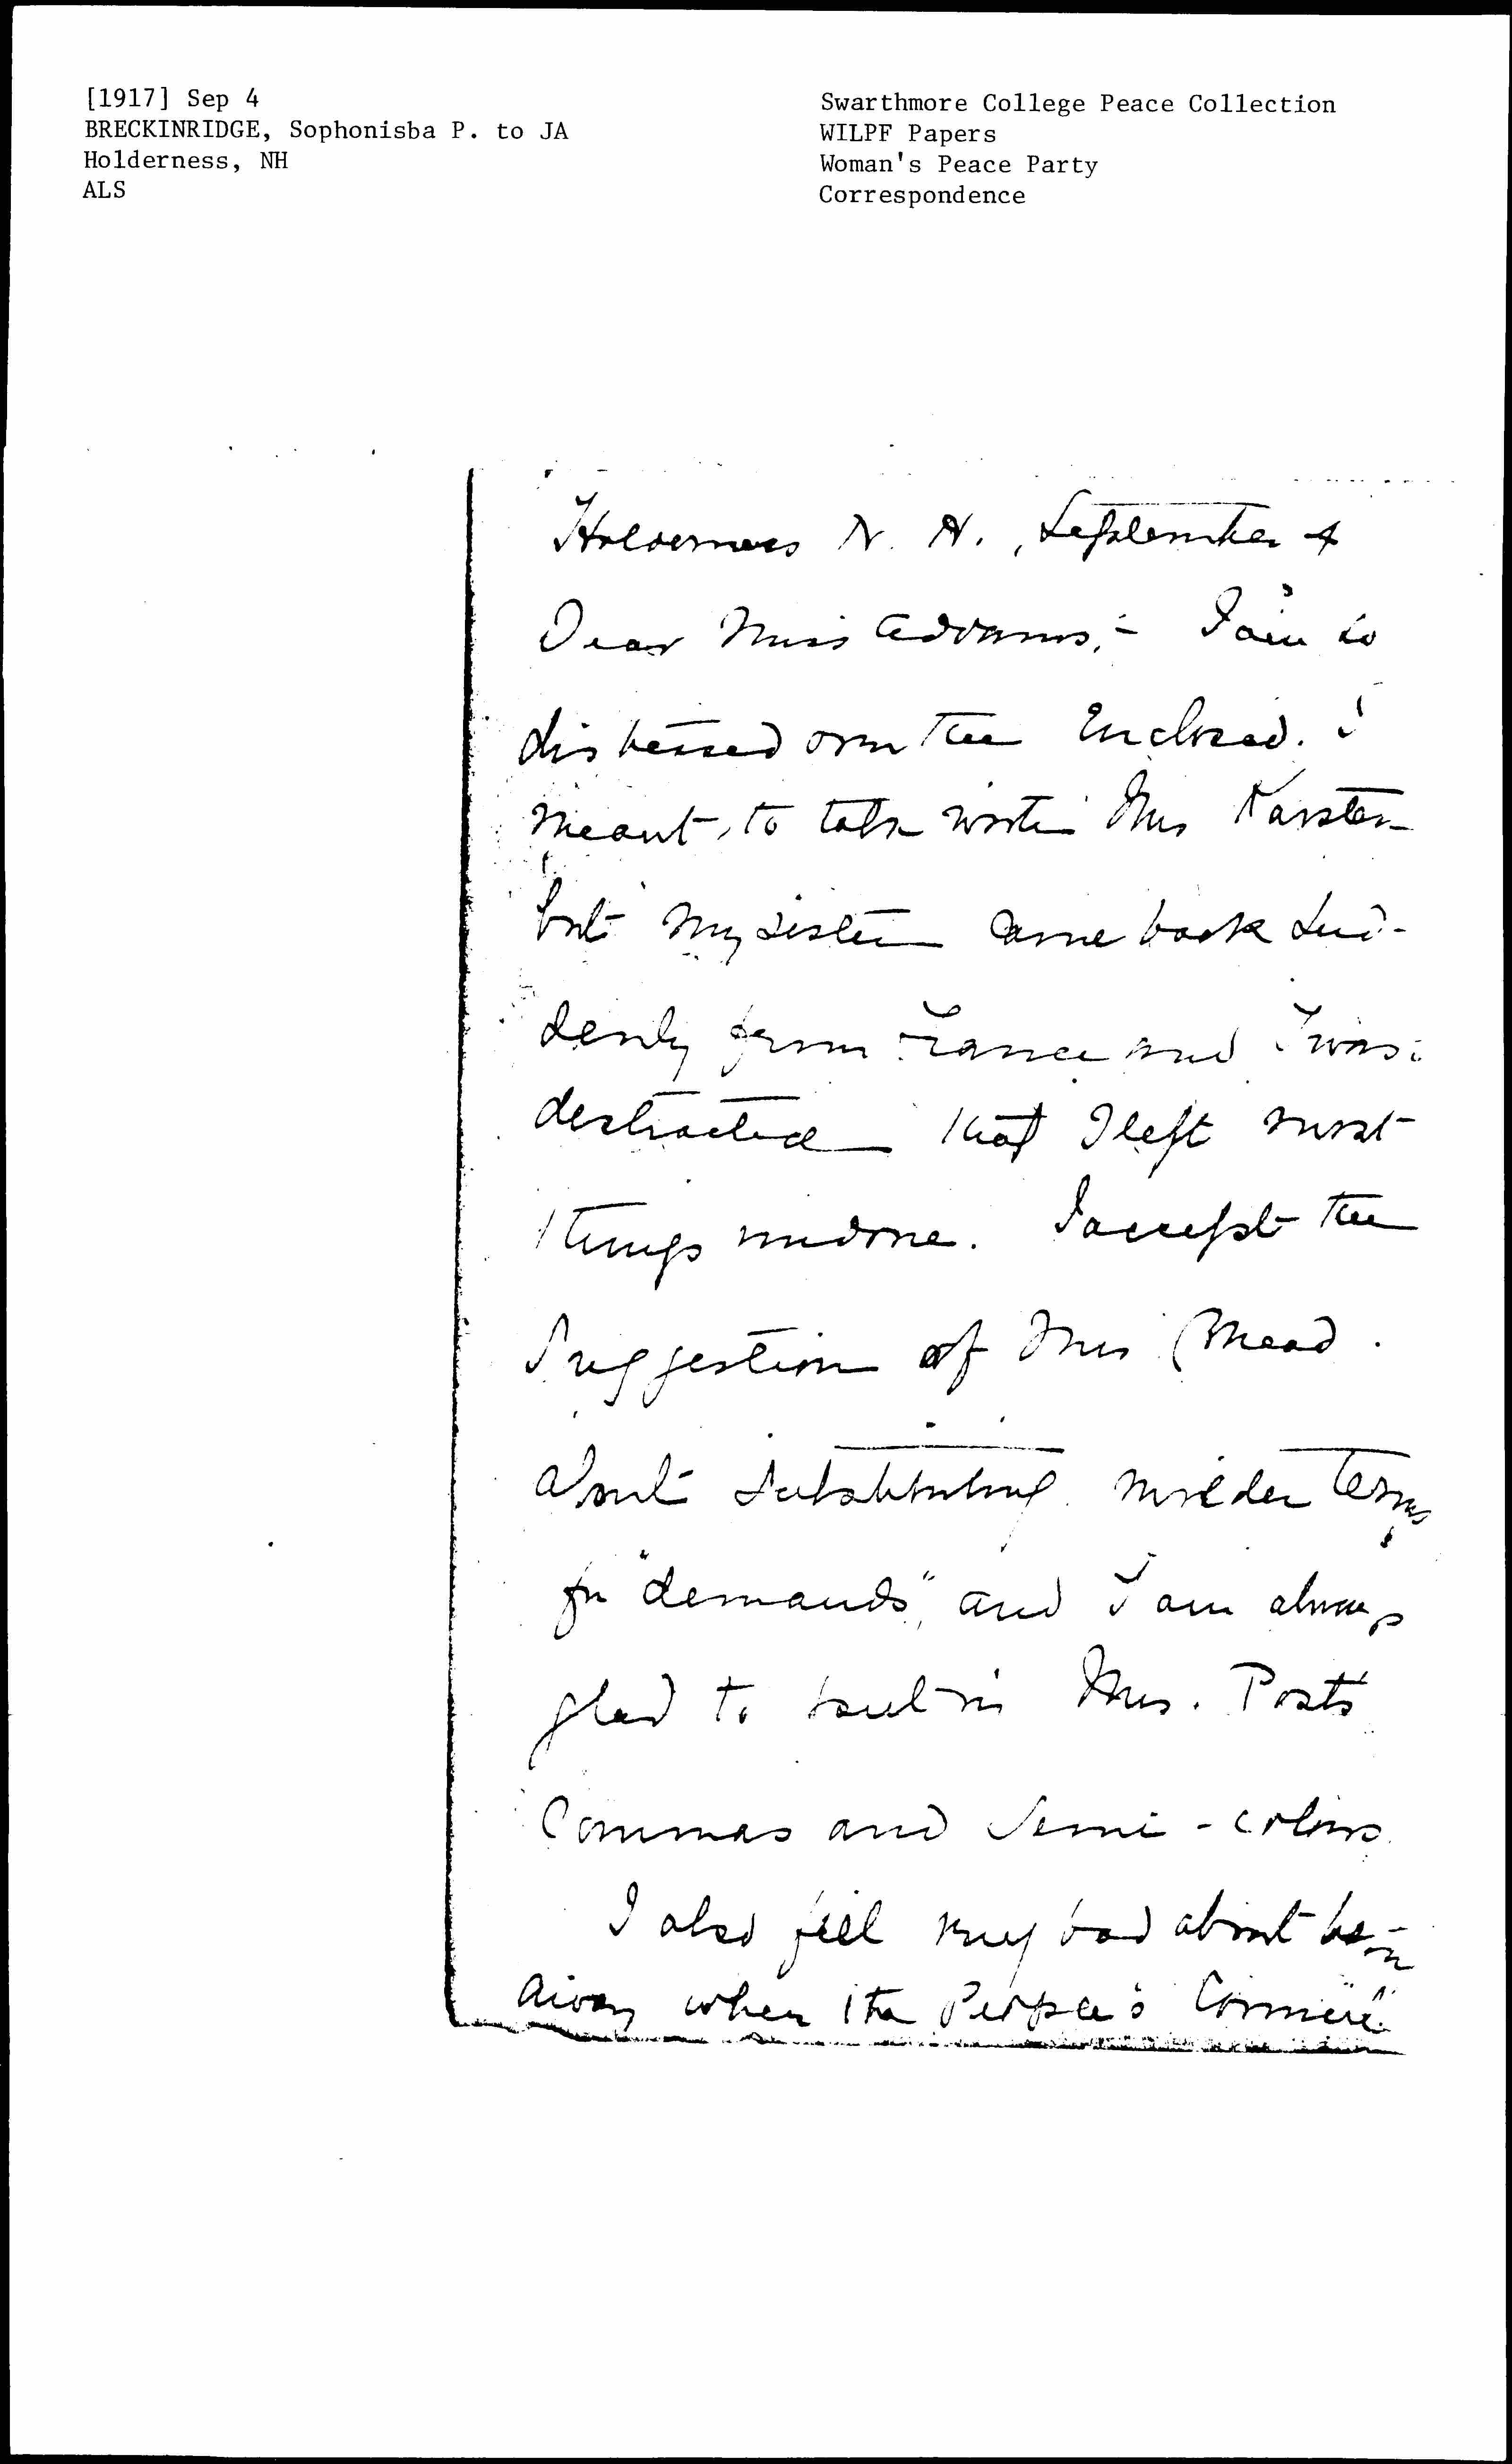 [1917] Sep 4
BRECKINRIDGE, Sophonisba P. to JA
Holderness, NH
ALS
Swarthmore College Peace Collection
WILPF Papers
Woman's Peace Party
Correspondence
Holderness N. H., September 4
Dear Miss Addams,- I am so
distressed over the enclosed. I
meant to talk with Mrs Karsten
but my sister came back sud-
denly from France and I was
distracted that I left most
things undone. I accept the
suggestion of Mrs Mead
about substituting milder terms
for "demands", and I am always
glad to put in Mrs. Post's
commas and semi-colons.
I also feel very bad about being
away when the People's